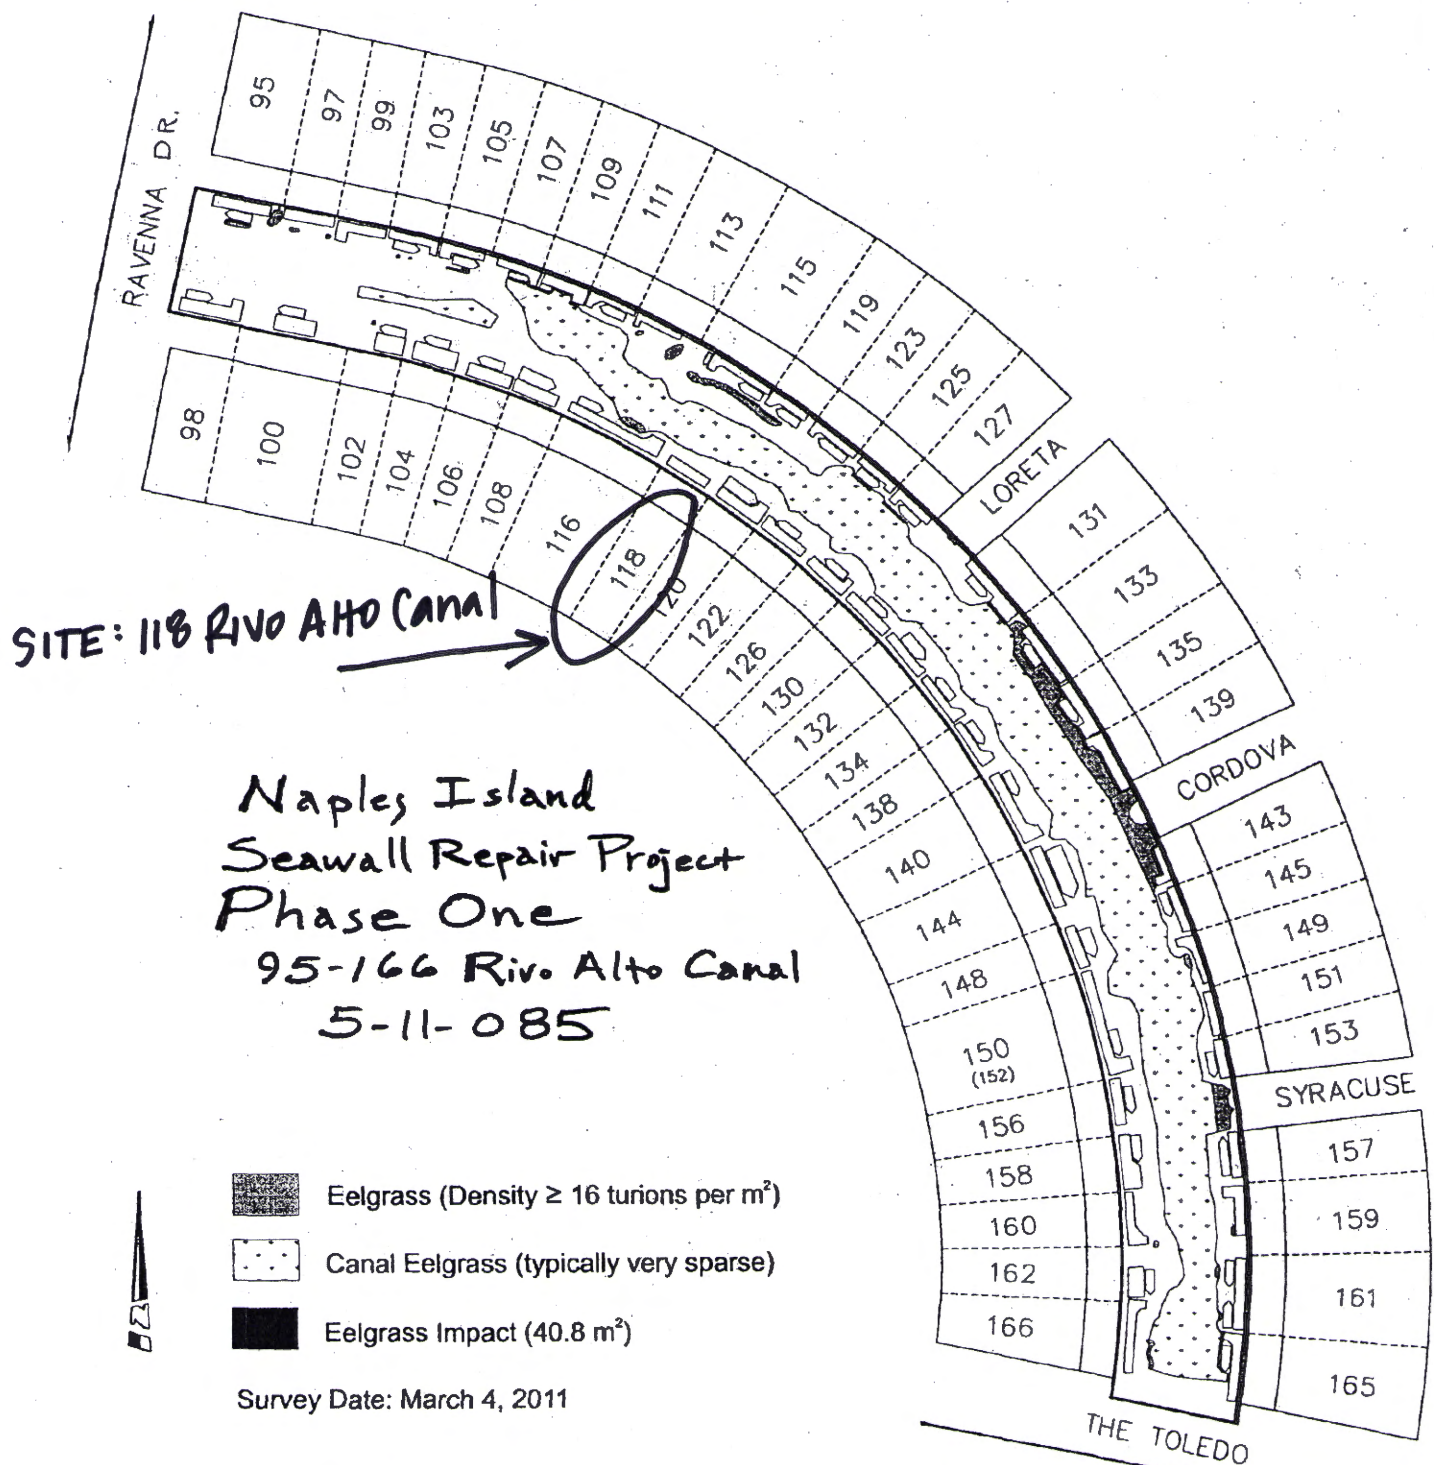 95
97
99
103
105
107
109
111
113
115
119
123
125
127
RAVENNA DR.
LORETA
131
133
135
139
CORDOVA
143
145
149
151
153
SYRACUSE
157
159
161
165
98
100
102
104
106
108
116
118
120
122
126
130
132
134
138
140
144
148
150
(152)
156
158
160
162
166
THE TOLEDO
SITE: 118 RIVO AltO Canal
Naples Island
Seawall Repair Project
Phase One
95-166 Rivo Alto Canal
5-11-085
Eelgrass (Density ≥ 16 turions per m²)
Canal Eelgrass (typically very sparse)
Eelgrass Impact (40.8 m²)
Survey Date: March 4, 2011
N